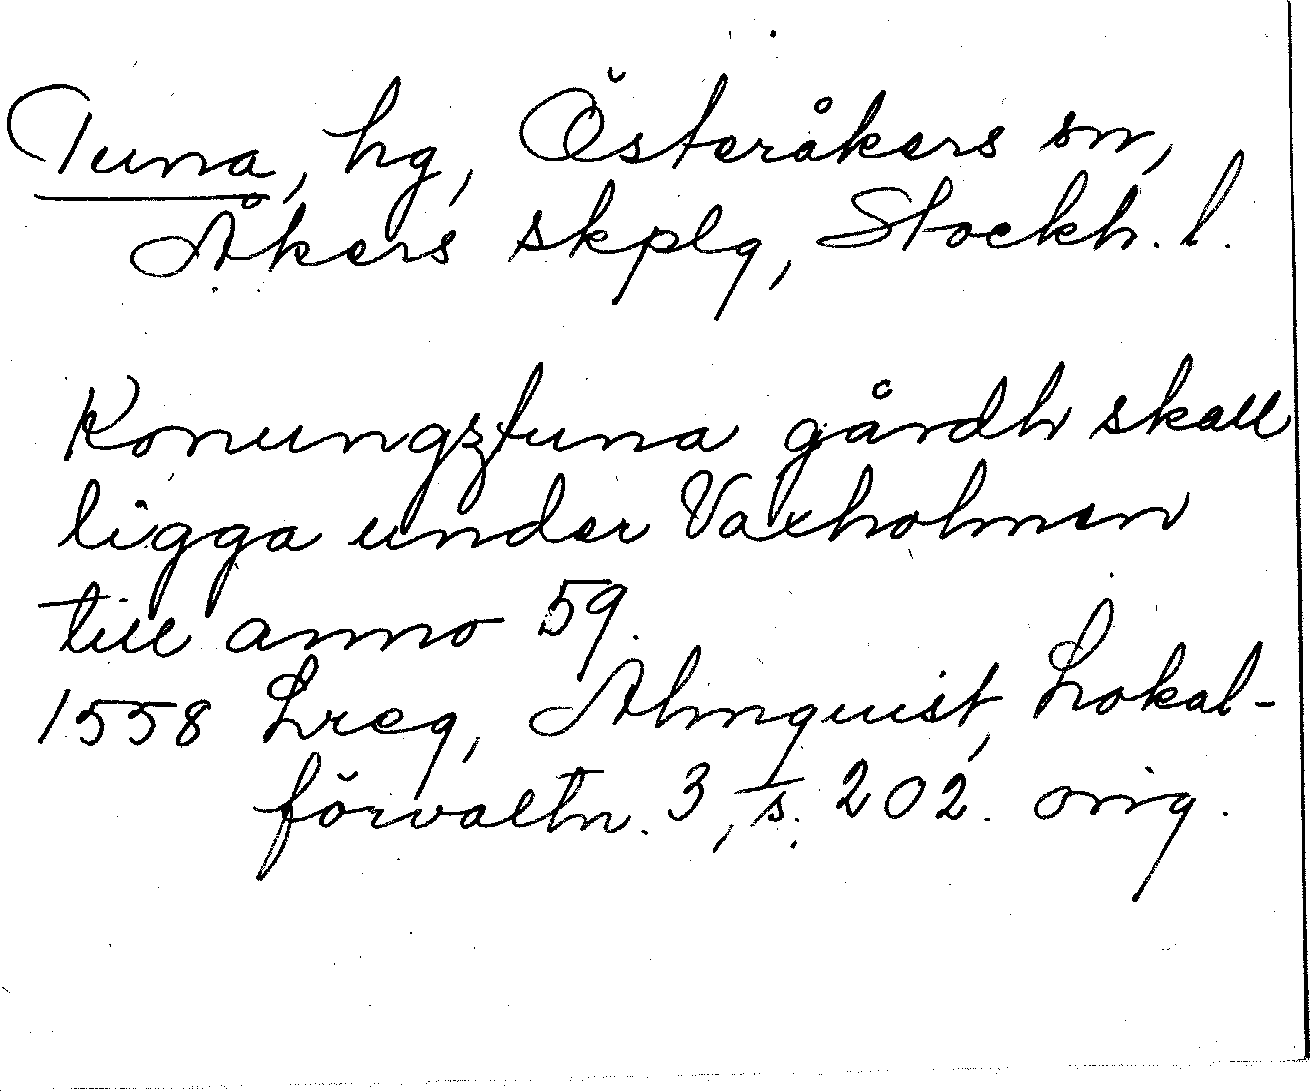 Tuna, hg, Österåkers sn,
Åkers skplg, Stockh. l.
Konungztuna gårdh skall
ligga under Vaxholmen
till anno 59.
1558 Lreg, Almquist, Lokal-
förvaltn. 3, s. 202. orig.